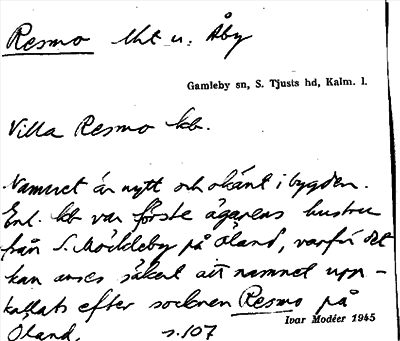 Resmo lht u. Åby
Gamleby sn, S. Tjusts hd, Kalm. l.
Villa Resmo kb.
Namnet är nytt och okänt i bygden.
Enl. kb var förste ägarens hustru
från S. Möckleby på Öland, varför det
kan anses säkert att namnet upp-
kallats efter socknen Resmo på
Öland. s. 107
Ivar Modéer 1945